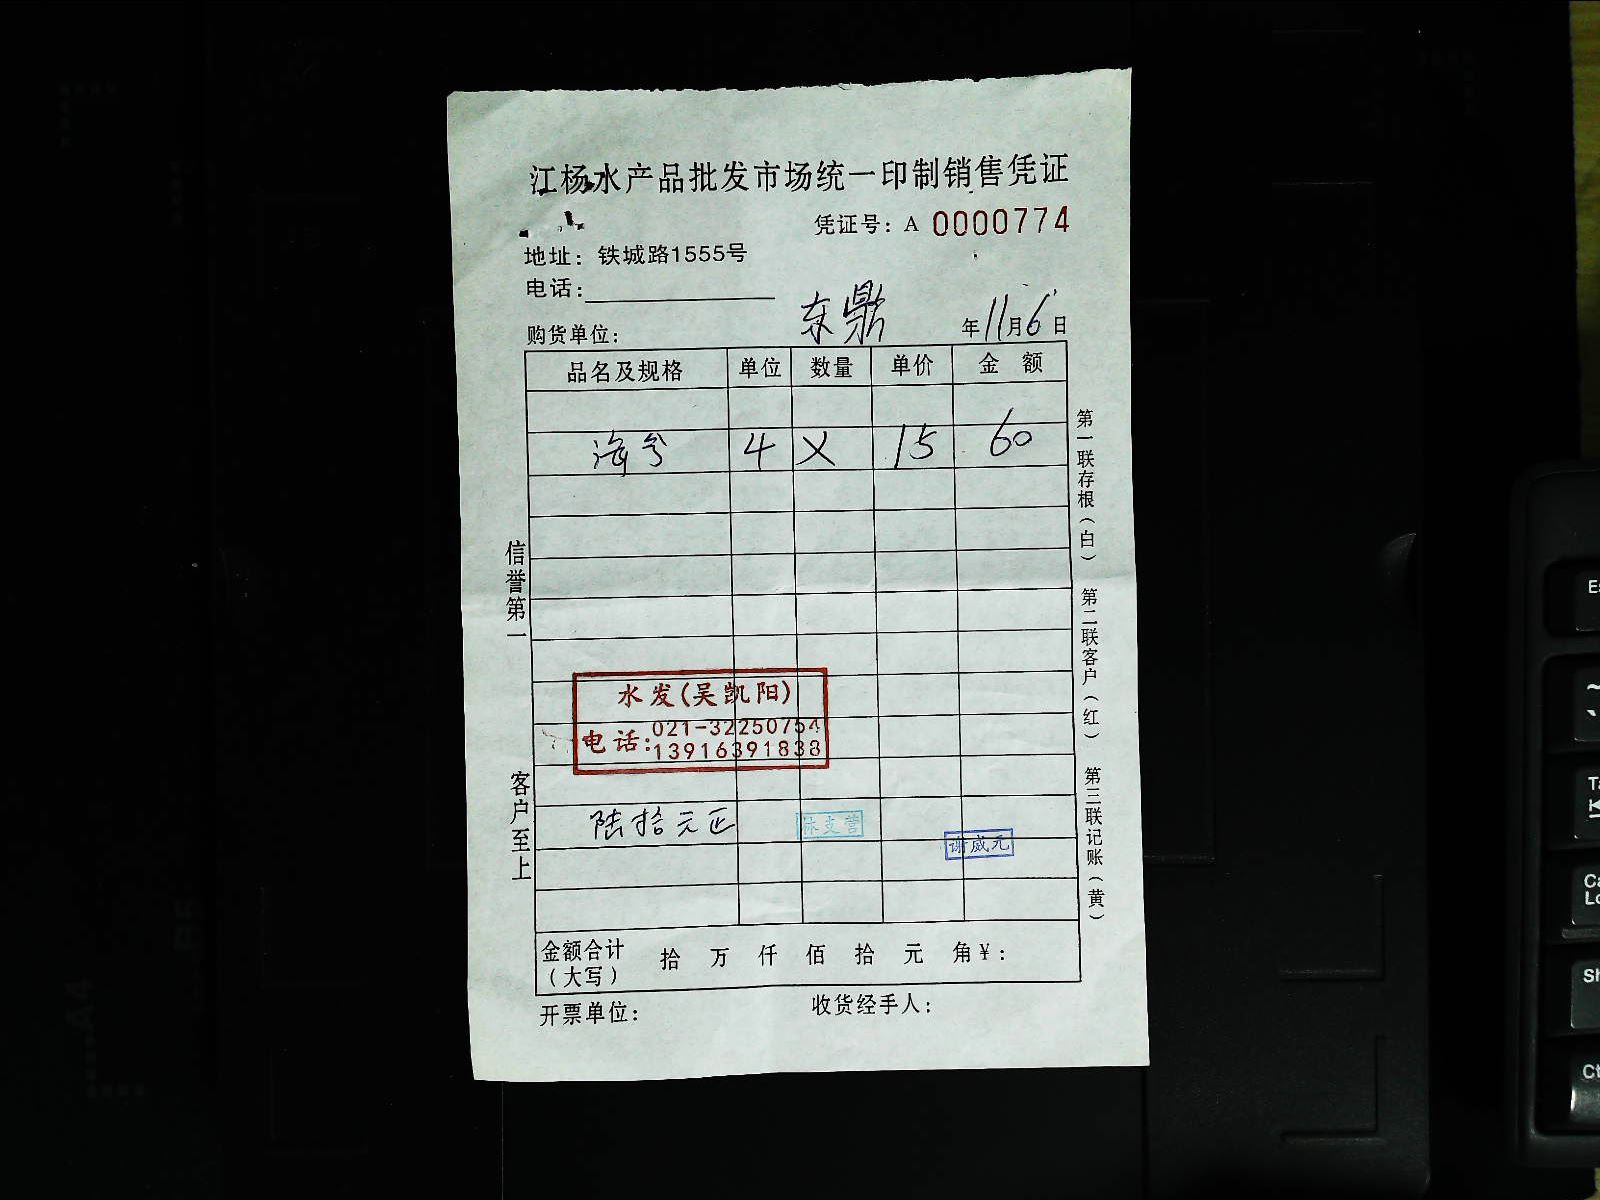 江杨水产品批发市场统一印制销售凭证
凭证号：A 0000774
地址：铁城路1555号
电话：
购货单位： 东鼎 年11月6日
品名及规格 单位 数量 单价 金 额
海 4 X 15 60
水发(吴凯阳)
电话:021-32250754
13916391838
陆拾元正
支营
谢威元
金额合计 拾 万 仟 佰 拾 元 角¥：
（大写）
开票单位： 收货经手人：
信誉第一
客户至上
第一联存根（白）
第二联客户（红）
第三联记账（黄）
Es
~
`
Ta
Ca
Lo
Sh
Ct